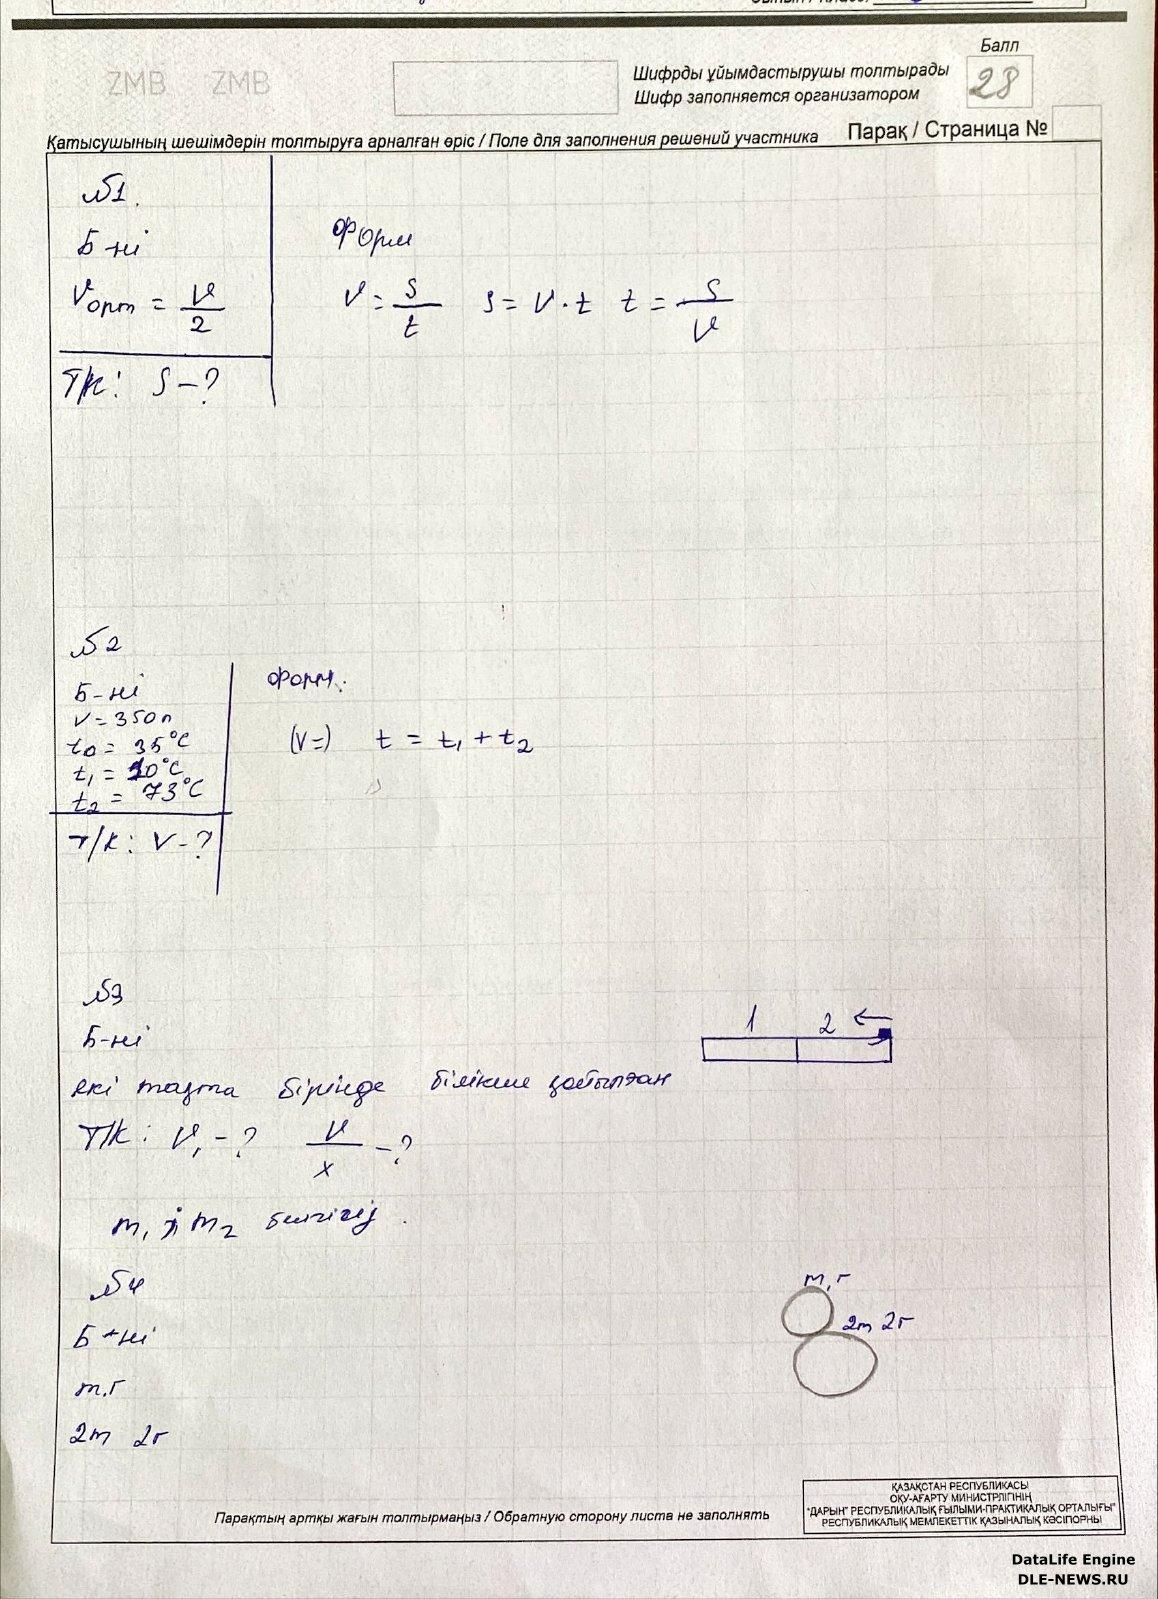 ZMB ZMB
Балл
Шифрды ұйымдастырушы толтырады
Шифр заполняется организатором
28
Қатысушының шешімдерін толтыруға арналған өріс / Поле для заполнения решений участника
Парақ / Страница №
№1.
Б-ні
Vорт = V/2
Т/К: S-?
Форм
V = S/t S = V·t t = S/V
№2
Б-ні
V=350л
t0 = 35°C
t1 = 10°C
t2 = 73°C
Т/К: V-?
Форм.
(V=) t = t1 + t2
№3
Б-ні
1 2
екі тақта бірінде білікше қойылған
Т/К: V1 -? V/x -?
m1 m2
№4
Б-ні
m,r
2m 2r
m,r
2m 2r
Парақтың артқы жағын толтырмаңыз / Обратную сторону листа не заполнять
ҚАЗАҚСТАН РЕСПУБЛИКАСЫ
ОҚУ-АҒАРТУ МИНИСТРЛІГІНІҢ
"ДАРЫН" РЕСПУБЛИКАЛЫҚ ҒЫЛЫМИ-ПРАКТИКАЛЫҚ ОРТАЛЫҒЫ"
РЕСПУБЛИКАЛЫҚ МЕМЛЕКЕТТІК ҚАЗЫНАЛЫҚ КӘСІПОРНЫ
DataLife Engine
DLE-NEWS.RU